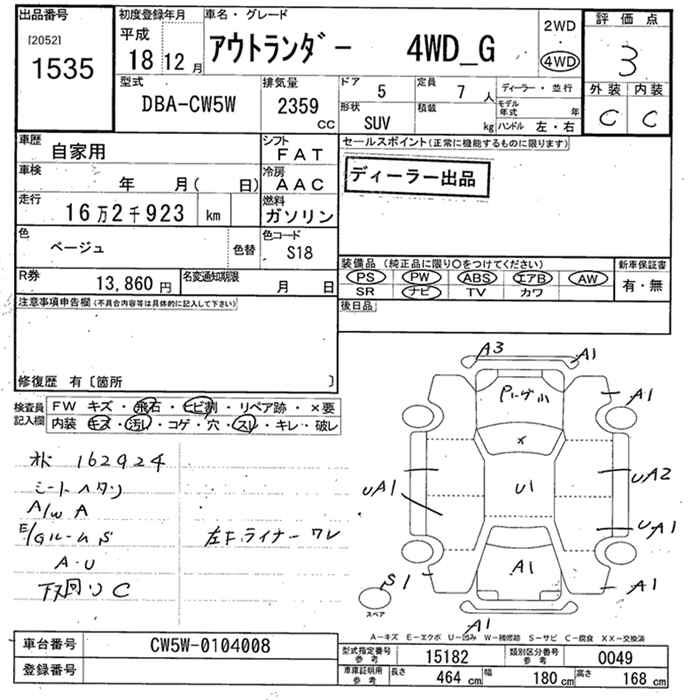 出品番号
[2052]
1535
初度登録年月
平成
18 12 月
車名・グレード
アウトランダー 4WD_G
2WD
4WD
評価点
3
外装 内装
C C
型式
DBA-CW5W
排気量
2359
CC
ドア
5
定員
7 人
形状
SUV
積載
kg
ディーラー・並行
モデル年式 年
ハンドル 左・右
車歴
自家用
シフト
FAT
車検
年 月( 日)
冷房
AAC
走行
16万2千923 km
燃料
ガソリン
色
ベージュ
色替
色コード
S18
R券
13,860 円
名変通知期限
月 日
セールスポイント(正常に機能するものに限ります)
ディーラー出品
装備品 (純正品に限り○をつけてください)
PS PW ABS エアB AW
SR ナビ TV カワ
新車保証書
有・無
後日品
注意事項申告欄(不具合内容等は具体的に記入して下さい)
修復歴 有〔箇所 〕
検査員記入欄
FW キズ・飛石・ヒビ割・リペア跡・×要
内装 キズ・汚レ・コゲ・穴・スレ・キレ・破レ
162924
シートヘタリ
A/W A
E/Gルーム S
左F.ライナー ワレ
A・U
下回り C
A3
A1
A1
Pゲ小
×
UA2
UA1
U1
UA1
A1
S1
A1
スペア
A1
A-キズ E-エクボ U-凹み W-補修跡 S-サビ C-腐食 XX-交換済
車台番号
CW5W-0104008
登録番号
型式指定番号
参考
15182
類別区分番号
参考
0049
車庫証明用
参考
長さ 464 cm 幅 180 cm 高さ 168 cm